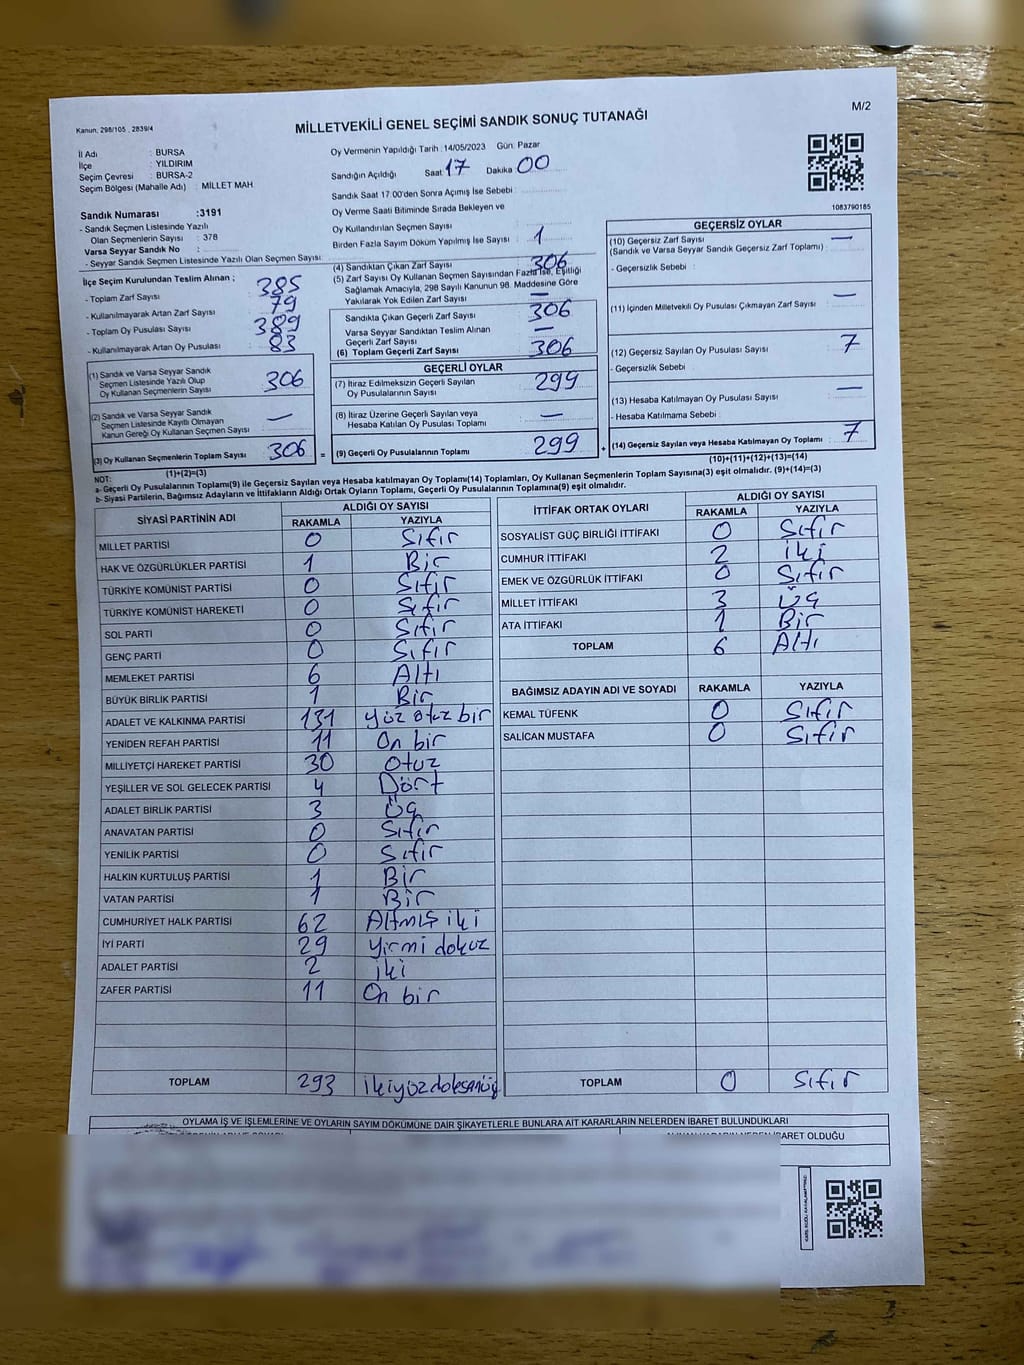 Kanun, 298/105 , 2839/4
M/2
MİLLETVEKİLİ GENEL SEÇİMİ SANDIK SONUÇ TUTANAĞI
İl Adı : BURSA
İlçe : YILDIRIM
Seçim Çevresi : BURSA-2
Seçim Bölgesi (Mahalle Adı) : MİLLET MAH
Sandık Numarası :3191
- Sandık Seçmen Listesinde Yazılı
Olan Seçmenlerin Sayısı : 378
Varsa Seyyar Sandık No :
- Seyyar Sandık Seçmen Listesinde Yazılı Olan Seçmen Sayısı:
Oy Vermenin Yapıldığı Tarih :14/05/2023 Gün: Pazar
Sandığın Açıldığı Saat 17 Dakika 00
Sandık Saat 17:00'den Sonra Açımış İse Sebebi :
Oy Verme Saati Bitiminde Sırada Bekleyen ve
Oy Kullandırılan Seçmen Sayısı :
Birden Fazla Sayım Döküm Yapılmış İse Sayısı : 1
1083790185
İlçe Seçim Kurulundan Teslim Alınan ;
- Toplam Zarf Sayısı 385
- Kullanılmayarak Artan Zarf Sayısı 79
- Toplam Oy Pusulası Sayısı 389
- Kullanılmayarak Artan Oy Pusulası 83
(1) Sandık ve Varsa Seyyar Sandık
Seçmen Listesinde Yazılı Olup
Oy Kullanan Seçmenlerin Sayısı 306
(2) Sandık ve Varsa Seyyar Sandık
Seçmen Listesinde Kayıtlı Olmayan
Kanun Gereği Oy Kullanan Seçmen Sayısı —
(3) Oy Kullanan Seçmenlerin Toplam Sayısı 306 =
(1)+(2)=(3)
(4) Sandıktan Çıkan Zarf Sayısı 306
(5) Zarf Sayısı Oy Kullanan Seçmen Sayısından Fazla İse, Eşitliği
Sağlamak Amacıyla, 298 Sayılı Kanunun 98. Maddesine Göre
Yakılarak Yok Edilen Zarf Sayısı —
Sandıkta Çıkan Geçerli Zarf Sayısı 306
Varsa Seyyar Sandıktan Teslim Alınan
Geçerli Zarf Sayısı —
(6) Toplam Geçerli Zarf Sayısı 306
GEÇERLİ OYLAR
(7) İtiraz Edilmeksizin Geçerli Sayılan
Oy Pusulalarının Sayısı 299
(8) İtiraz Üzerine Geçerli Sayılan veya
Hesaba Katılan Oy Pusulası Toplamı —
(9) Geçerli Oy Pusulalarının Toplamı 299 +
GEÇERSİZ OYLAR
(10) Geçersiz Zarf Sayısı —
(Sandık ve Varsa Seyyar Sandık Geçersiz Zarf Toplamı) :
- Geçersizlik Sebebi :
(11) İçinden Milletvekili Oy Pusulası Çıkmayan Zarf Sayısı —
(12) Geçersiz Sayılan Oy Pusulası Sayısı 7
- Geçersizlik Sebebi
(13) Hesaba Katılmayan Oy Pusulası Sayısı —
- Hesaba Katılmama Sebebi :
(14) Geçersiz Sayılan veya Hesaba Katılmayan Oy Toplamı 7
(10)+(11)+(12)+(13)=(14)
NOT:
a- Geçerli Oy Pusulalarının Toplamı(9) ile Geçersiz Sayılan veya Hesaba katılmayan Oy Toplamı(14) Toplamları, Oy Kullanan Seçmenlerin Toplam Sayısına(3) eşit olmalıdır. (9)+(14)=(3)
b- Siyasi Partilerin, Bağımsız Adayların ve İttifakların Aldığı Ortak Oyların Toplamı, Geçerli Oy Pusulalarının Toplamına(9) eşit olmalıdır.
SİYASİ PARTİNİN ADI ALDIĞI OY SAYISI
RAKAMLA YAZIYLA
MİLLET PARTİSİ 0 Sıfır
HAK VE ÖZGÜRLÜKLER PARTİSİ 1 Bir
TÜRKİYE KOMÜNİST PARTİSİ 0 Sıfır
TÜRKİYE KOMÜNİST HAREKETİ 0 Sıfır
SOL PARTİ 0 Sıfır
GENÇ PARTİ 0 Sıfır
MEMLEKET PARTİSİ 6 Altı
BÜYÜK BİRLİK PARTİSİ 1 Bir
ADALET VE KALKINMA PARTİSİ 131 yüz otuz bir
YENİDEN REFAH PARTİSİ 11 On bir
MİLLİYETÇİ HAREKET PARTİSİ 30 Otuz
YEŞİLLER VE SOL GELECEK PARTİSİ 4 Dört
ADALET BİRLİK PARTİSİ 3 Üç
ANAVATAN PARTİSİ 0 Sıfır
YENİLİK PARTİSİ 0 Sıfır
HALKIN KURTULUŞ PARTİSİ 1 Bir
VATAN PARTİSİ 1 Bir
CUMHURİYET HALK PARTİSİ 62 Altmış iki
İYİ PARTİ 29 yirmi dokuz
ADALET PARTİSİ 2 iki
ZAFER PARTİSİ 11 On bir
TOPLAM 293 ikiyüzdoksanüç
İTTİFAK ORTAK OYLARI ALDIĞI OY SAYISI
RAKAMLA YAZIYLA
SOSYALİST GÜÇ BİRLİĞİ İTTİFAKI 0 Sıfır
CUMHUR İTTİFAKI 2 iki
EMEK VE ÖZGÜRLÜK İTTİFAKI 0 Sıfır
MİLLET İTTİFAKI 3 Üç
ATA İTTİFAKI 1 Bir
TOPLAM 6 Altı
BAĞIMSIZ ADAYIN ADI VE SOYADI RAKAMLA YAZIYLA
KEMAL TÜFENK 0 Sıfır
SALİCAN MUSTAFA 0 Sıfır
TOPLAM 0 Sıfır
OYLAMA İŞ VE İŞLEMLERİNE VE OYLARIN SAYIM DÖKÜMÜNE DAİR ŞİKAYETLERLE BUNLARA AİT KARARLARIN NELERDEN İBARET BULUNDUKLARI
İBARET OLDUĞU